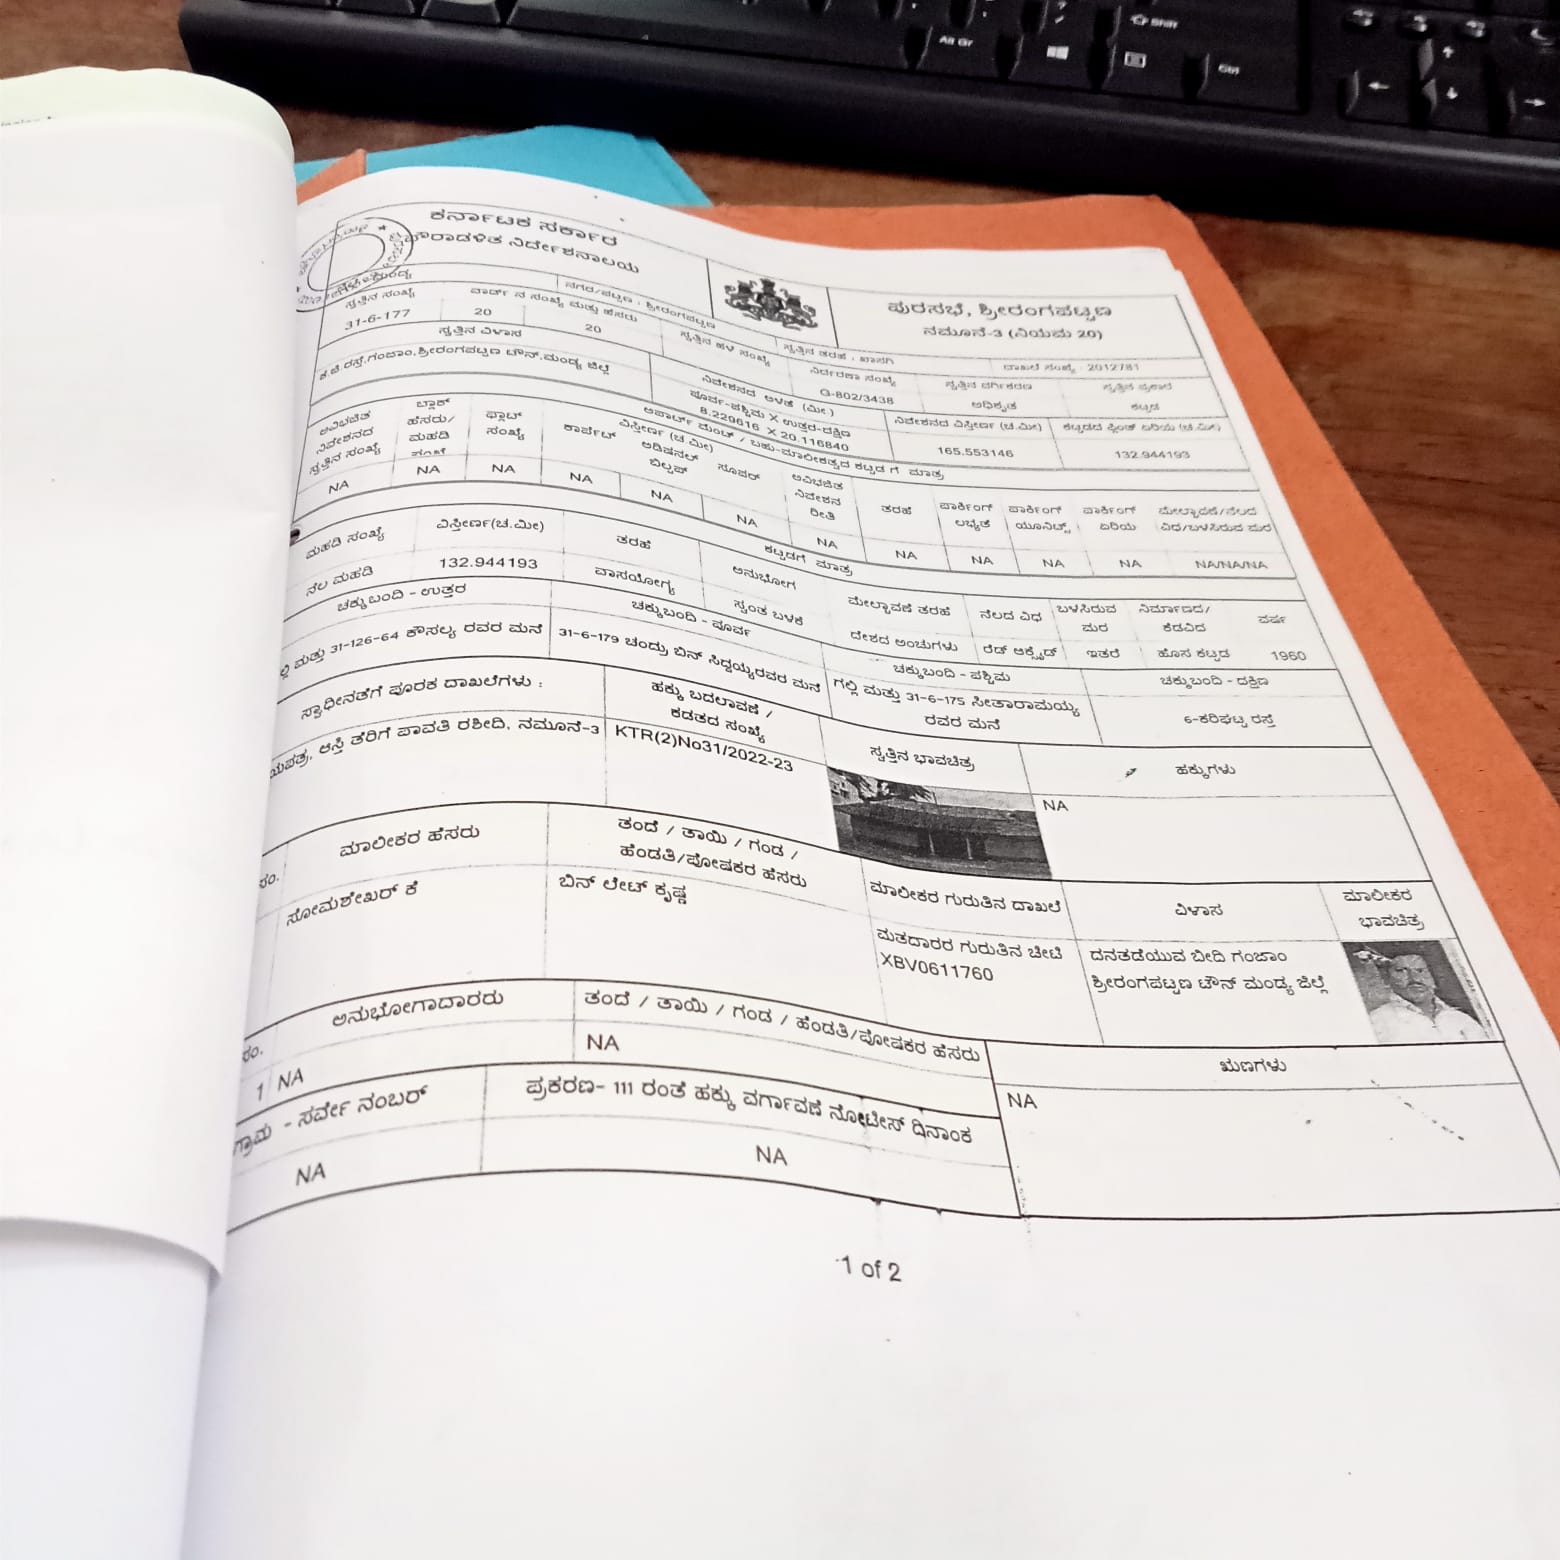 ಕರ್ನಾಟಕ ಸರ್ಕಾರ
ಪೌರಾಡಳಿತ ನಿರ್ದೇಶನಾಲಯ
ಪುರಸಭೆ, ಶ್ರೀರಂಗಪಟ್ಟಣ
ನಮೂನೆ-3 (ನಿಯಮ 20)
ನಗರ/ಪಟ್ಟಣ : ಶ್ರೀರಂಗಪಟ್ಟಣ
ಸ್ವತ್ತಿನ ತರಹ : ಖಾಸಗಿ
ದಾಖಲೆ ಸಂಖ್ಯೆ : 2012781
ಸ್ವತ್ತಿನ ಸಂಖ್ಯೆ
ವಾರ್ಡ್ ನ ಸಂಖ್ಯೆ ಮತ್ತು ಹೆಸರು
ಸ್ವತ್ತಿನ ಹಳೆ ಸಂಖ್ಯೆ
ನಿರ್ಧರಣಾ ಸಂಖ್ಯೆ
ಸ್ವತ್ತಿನ ವರ್ಗೀಕರಣ
ಸ್ವತ್ತಿನ ಪ್ರಕಾರ
31-6-177
20
20
G-802/3438
ಅಧಿಕೃತ
ಕಟ್ಟಡ
ಸ್ವತ್ತಿನ ವಿಳಾಸ
ನಿವೇಶನದ ಅಳತೆ (ಮೀ)
ಪೂರ್ವ-ಪಶ್ಚಿಮ X ಉತ್ತರ-ದಕ್ಷಿಣ
ನಿವೇಶನದ ವಿಸ್ತೀರ್ಣ (ಚ.ಮೀ)
ಕಟ್ಟಡದ ಪ್ಲಿಂತ್ ಏರಿಯ (ಚ.ಮೀ)
ಕೆ.ಜಿ.ರಸ್ತೆ,ಗಂಜಾಂ,ಶ್ರೀರಂಗಪಟ್ಟಣ ಟೌನ್,ಮಂಡ್ಯ ಜಿಲ್ಲೆ
8.229616 X 20.116840
165.553146
132.944193
ಅಪಾರ್ಟ್ ಮೆಂಟ್ / ಬಹು-ಮಾಲೀಕತ್ವದ ಕಟ್ಟಡ ಗೆ ಮಾತ್ರ
ಅವಿಭಜಿತ ನಿವೇಶನದ ಸ್ವತ್ತಿನ ಸಂಖ್ಯೆ
ಬ್ಲಾಕ್ ಹೆಸರು/ ಮಹಡಿ ಸಂಖ್ಯೆ
ಫ್ಲಾಟ್ ಸಂಖ್ಯೆ
ವಿಸ್ತೀರ್ಣ (ಚ.ಮೀ)
ಕಾರ್ಪೆಟ್
ಅಡಿಷನಲ್ ಬಿಲ್ಟಪ್
ಸೂಪರ್
ಅವಿಭಜಿತ ನಿವೇಶನ ರೀತಿ
ತರಹೆ
ಪಾರ್ಕಿಂಗ್ ಲಭ್ಯತೆ
ಪಾರ್ಕಿಂಗ್ ಯೂನಿಟ್ಸ್
ಪಾರ್ಕಿಂಗ್ ಏರಿಯ
ಮೇಲ್ಛಾವಣಿ/ನೆಲದ ವಿಧ/ಬಳಸಿರುವ ಮರ
NA NA NA NA NA NA NA NA NA NA NA NA/NA/NA
ಕಟ್ಟಡಗೆ ಮಾತ್ರ
ಮಹಡಿ ಸಂಖ್ಯೆ
ವಿಸ್ತೀರ್ಣ(ಚ.ಮೀ)
ತರಹೆ
ಅನುಭೋಗ
ಮೇಲ್ಛಾವಣಿ ತರಹೆ
ನೆಲದ ವಿಧ
ಬಳಸಿರುವ ಮರ
ನಿರ್ಮಾಣದ/ ಕೆಡವಿದ
ವರ್ಷ
ನೆಲ ಮಹಡಿ
132.944193
ವಾಸಯೋಗ್ಯ
ಸ್ವಂತ ಬಳಕೆ
ದೇಶದ ಅಂಚುಗಳು
ರೆಡ್ ಆಕ್ಸೈಡ್
ಇತರೆ
ಹೊಸ ಕಟ್ಟಡ
1960
ಚಕ್ಕುಬಂದಿ - ಉತ್ತರ
ಚಕ್ಕುಬಂದಿ - ಪೂರ್ವ
ಚಕ್ಕುಬಂದಿ - ಪಶ್ಚಿಮ
ಚಕ್ಕುಬಂದಿ - ದಕ್ಷಿಣ
ಮತ್ತು 31-126-64 ಕೌಸಲ್ಯ ರವರ ಮನೆ
31-6-179 ಚಂದ್ರು ಬಿನ್ ಸಿದ್ದಯ್ಯರವರ ಮನೆ
ಗಲ್ಲಿ ಮತ್ತು 31-6-175 ಸೀತಾರಾಮಯ್ಯ
ರವರ ಮನೆ
6-ಕರಿಘಟ್ಟ ರಸ್ತೆ
ಸ್ವಾಧೀನತೆಗೆ ಪೂರಕ ದಾಖಲೆಗಳು :
ಹಕ್ಕು ಬದಲಾವಣೆ /
ಕಡತದ ಸಂಖ್ಯೆ
ಸ್ವತ್ತಿನ ಭಾವಚಿತ್ರ
ಹಕ್ಕುಗಳು
ಆಸ್ತಿ ತೆರಿಗೆ ಪಾವತಿ ರಶೀದಿ, ನಮೂನೆ-3
KTR(2)No31/2022-23
NA
ಮಾಲೀಕರ ಹೆಸರು
ತಂದೆ / ತಾಯಿ / ಗಂಡ /
ಹೆಂಡತಿ/ಪೋಷಕರ ಹೆಸರು
ಮಾಲೀಕರ ಗುರುತಿನ ದಾಖಲೆ
ವಿಳಾಸ
ಮಾಲೀಕರ
ಭಾವಚಿತ್ರ
ಸೋಮಶೇಖರ್ ಕೆ
ಬಿನ್ ಲೇಟ್ ಕೃಷ್ಣ
ಮತದಾರರ ಗುರುತಿನ ಚೀಟಿ
XBV0611760
ದನತಡೆಯುವ ಬೀದಿ ಗಂಜಾಂ
ಶ್ರೀರಂಗಪಟ್ಟಣ ಟೌನ್ ಮಂಡ್ಯ ಜಿಲ್ಲೆ
ಅನುಭೋಗಾದಾರರು
ತಂದೆ / ತಾಯಿ / ಗಂಡ / ಹೆಂಡತಿ/ಪೋಷಕರ ಹೆಸರು
ಋಣಗಳು
1 NA
NA
NA
ಗ್ರಾಮ - ಸರ್ವೇ ನಂಬರ್
ಪ್ರಕರಣ- 111 ರಂತೆ ಹಕ್ಕು ವರ್ಗಾವಣೆ ನೋಟೀಸ್ ದಿನಾಂಕ
NA
NA
1 of 2
Alt Gr
Shift
Ctrl